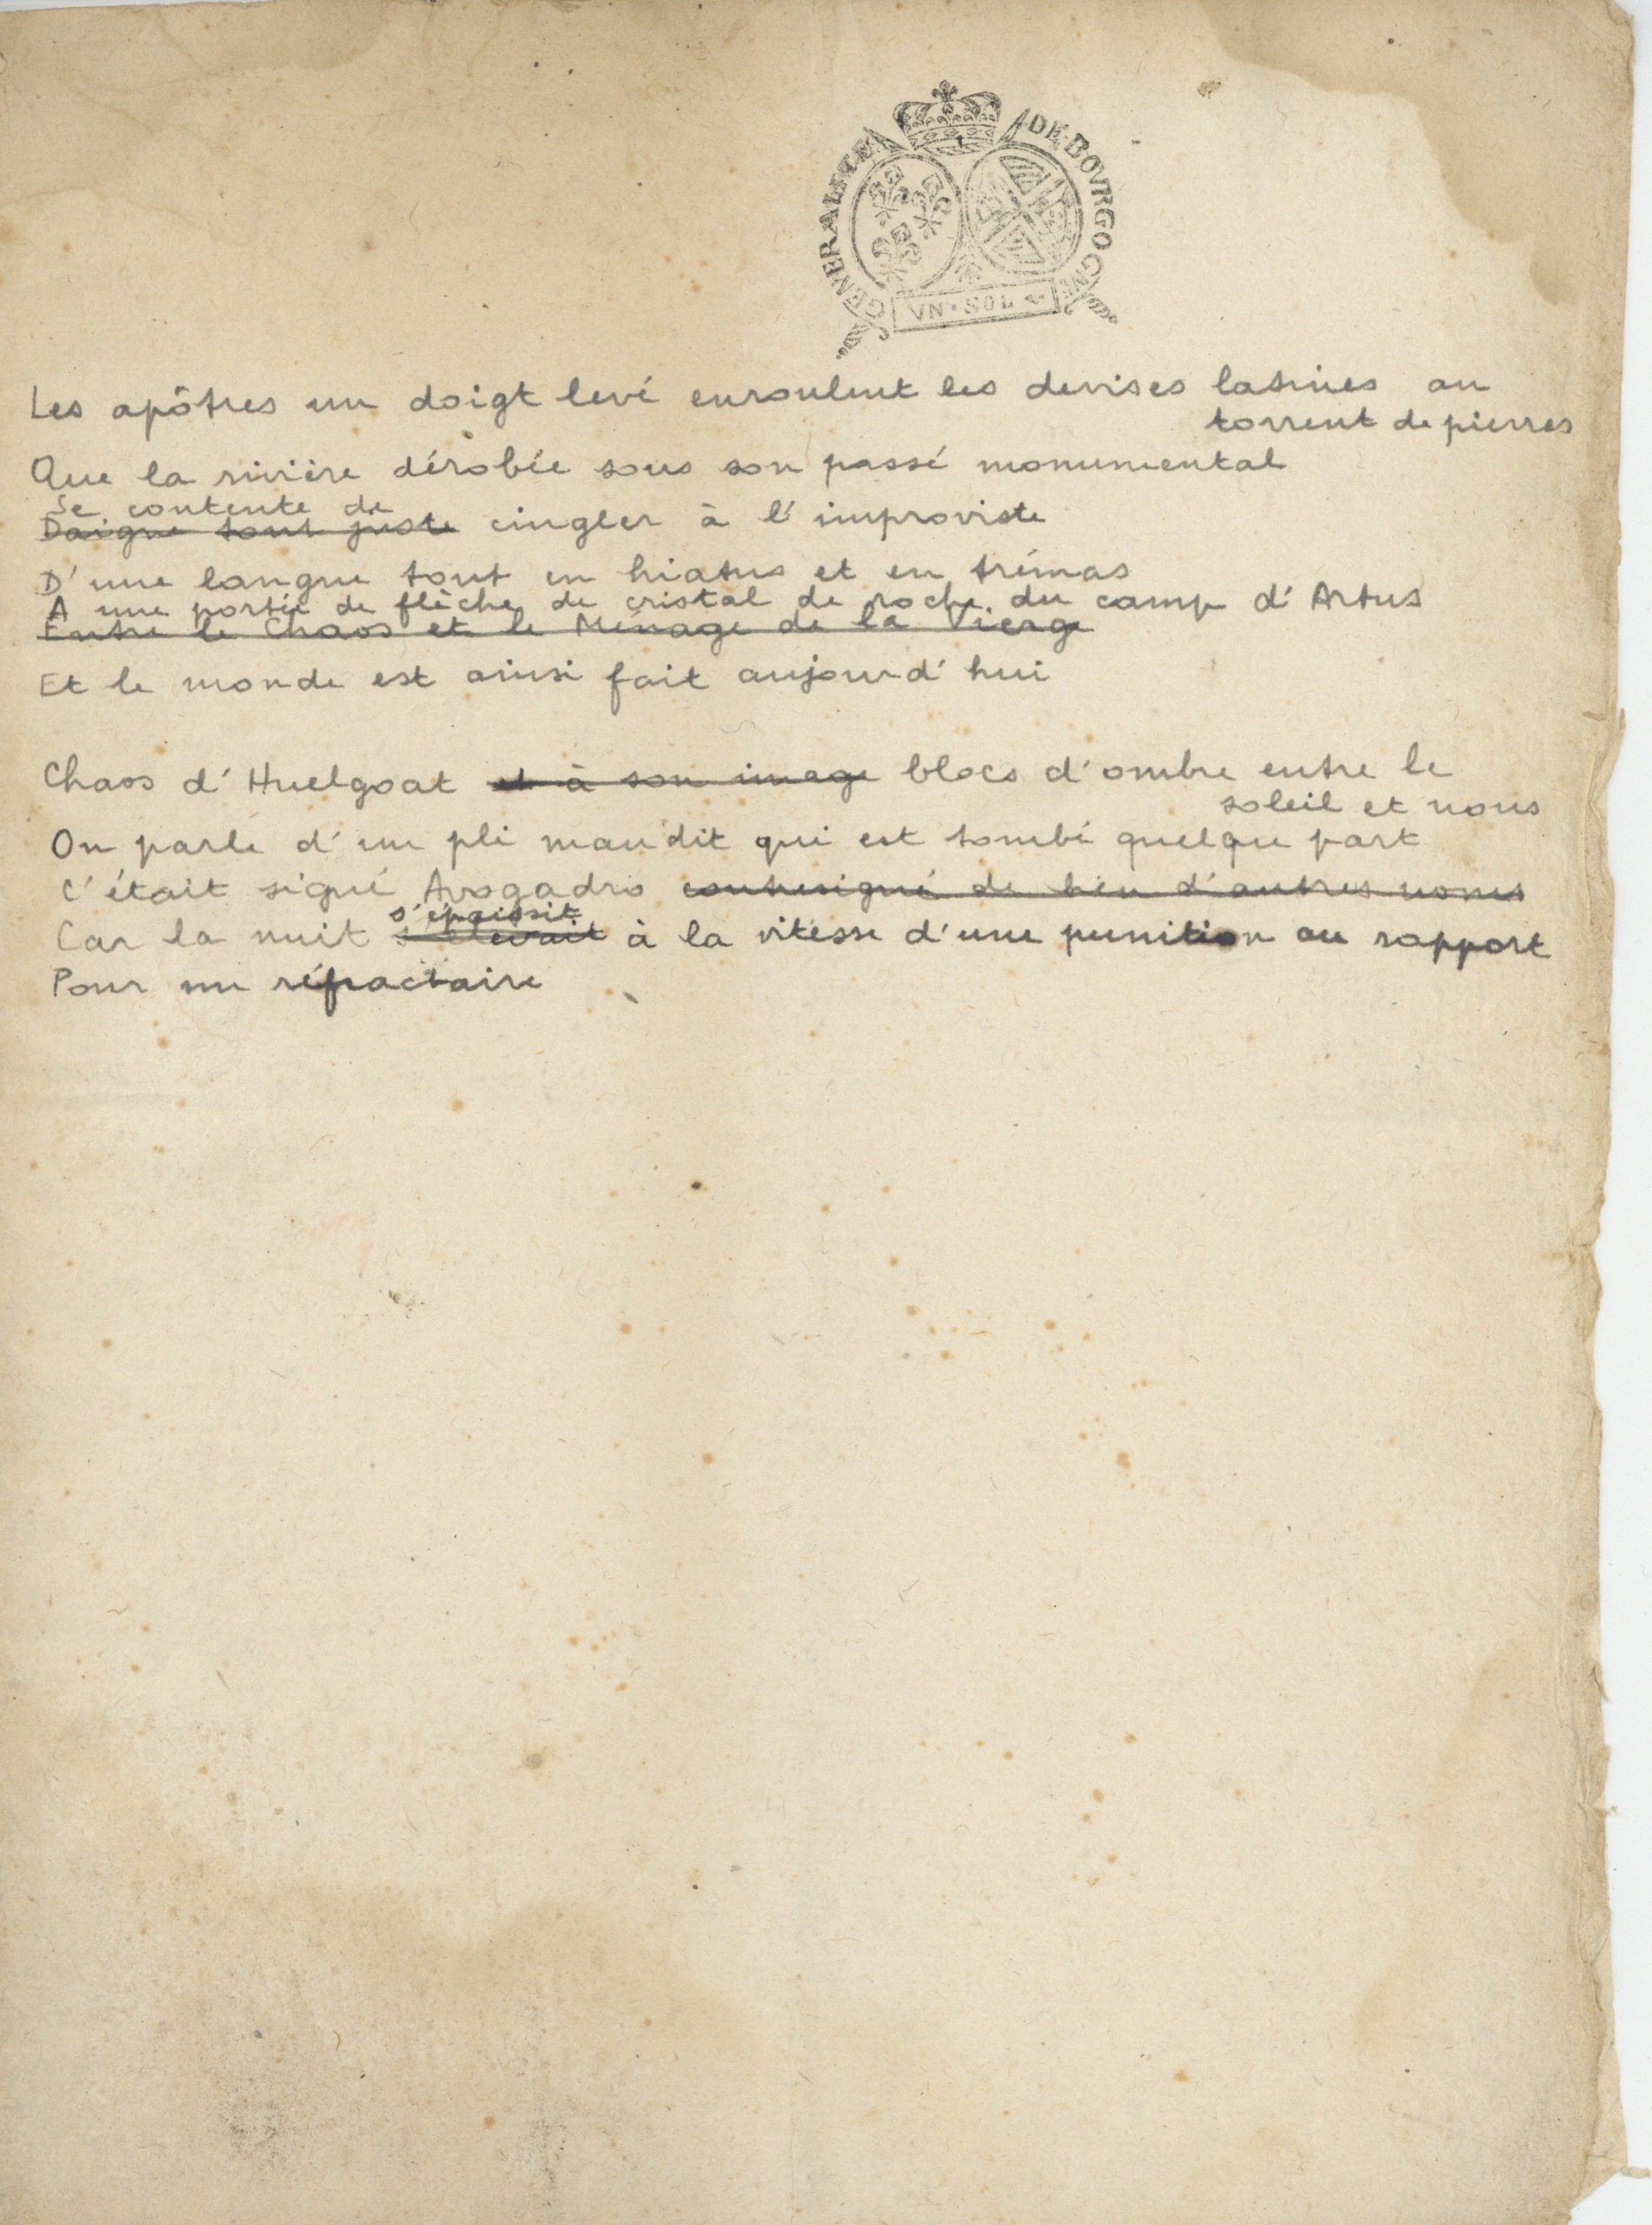 GENERALITE DE BOVRGOGNE
VN·SOL
Les apôtres un doigt levé enroulent les devises latines au
torrent de pierres
Que la rivière dérobée sous son passé monumental
Se contente de
Daigne tout juste cingler à l'improviste
D'une langue tout en hiatus et en trémas
A une portée de flèche de cristal de roche du camp d'Artus
Entre le Chaos et le Ménage de la Vierge
Et le monde est ainsi fait aujourd'hui
Chaos d'Huelgoat et à son image blocs d'ombre entre le
soleil et nous
On parle d'un pli maudit qui est tombé quelque part
C'était signé Avogadro contresigné de bien d'autres noms
s'épaissit
Car la nuit s'élevait à la vitesse d'une punition au rapport
Pour un réfractaire